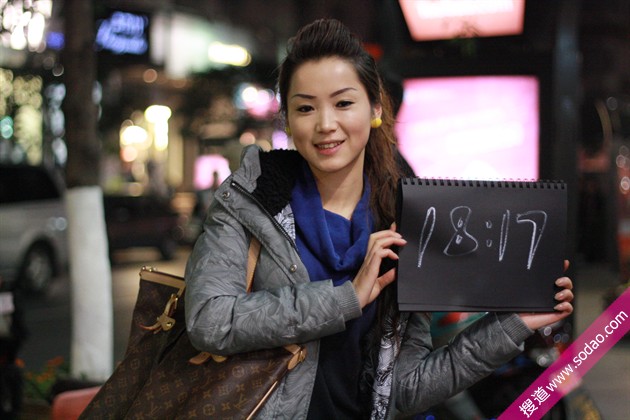 18:17
搜道www.sodao.com